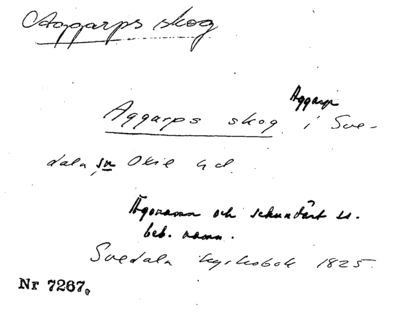 Aggarps skog
Aggarp
Aggarps skog i Sve-
dala sn Oxie hd.
Ägonamn och sekundärt ss.
beb. namn.
Svedala kyrkobok 1825.
Nr 7267.